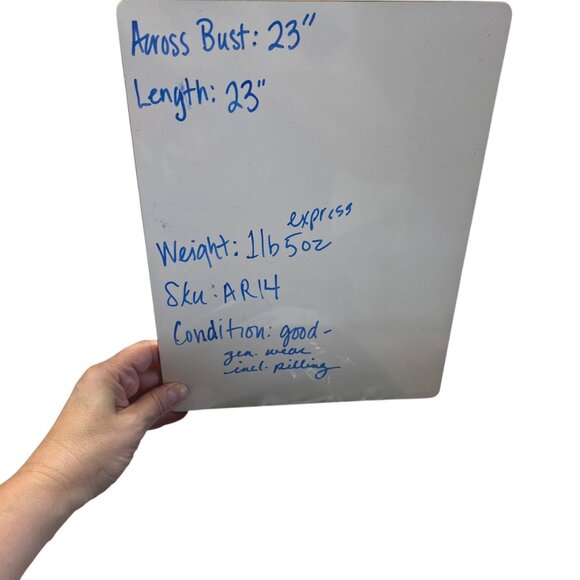 Across Bust: 23"
Length: 23"
express
Weight: 1lb 5oz
Sku: AR14
Condition: good-
gen. wear
incl. pilling